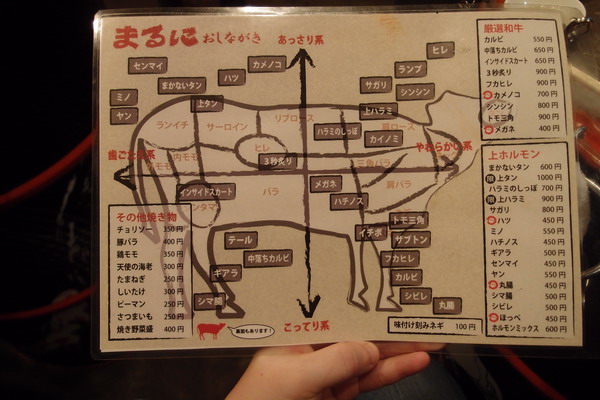 まるに おしながき
あっさり系
ヒレ
センマイ
カメノコ
ランプ
まかないタン
ハツ
サガリ
シンシン
ミノ
上タン
上ハラミ
ヤン
ランイチ
サーロイン
リブロース
ハラミのしっぽ
肩ロース
カイノミ
ヒレ
やわらかい系
内モモ
3秒炙り
三角バラ
インサイドスカート
バラ
メガネ
肩バラ
ハチノス
トモ三角
イチボ
ザブトン
テール
中落ちカルビ
フカヒレ
ギアラ
カルビ
シマ腸
シビレ
丸腸
こってり系
裏面もあります!
味付け刻みネギ 100円
その他焼き物
チョリソー 350円
豚バラ 400円
鶏モモ 350円
天使の海老 300円
たまねぎ 250円
しいたけ 300円
ピーマン 250円
さつまいも 250円
焼き野菜盛 400円
厳選和牛
カルビ 550円
中落ちカルビ 650円
インサイドスカート 650円
3秒炙り 900円
フカヒレ 900円
カメノコ 700円
シンシン 800円
トモ三角 900円
メガネ 400円
上ホルモン
まかないタン 600円
上タン 1000円
ハラミのしっぽ 700円
上ハラミ 900円
サガリ 800円
ハツ 450円
ミノ 550円
ハチノス 450円
ギアラ 500円
センマイ 450円
ヤン 550円
丸腸 450円
シマ腸 500円
シビレ 500円
ほっぺ 450円
ホルモンミックス 600円